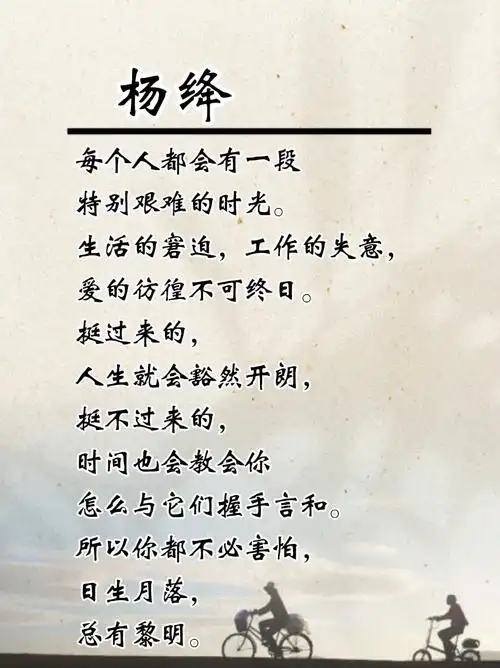 杨绛
每个人都会有一段
特别艰难的时光。
生活的窘迫，工作的失意，
爱的彷徨不可终日。
挺过来的，
人生就会豁然开朗，
挺不过来的，
时间也会教会你
怎么与它们握手言和。
所以你都不必害怕，
日生月落，
总有黎明。